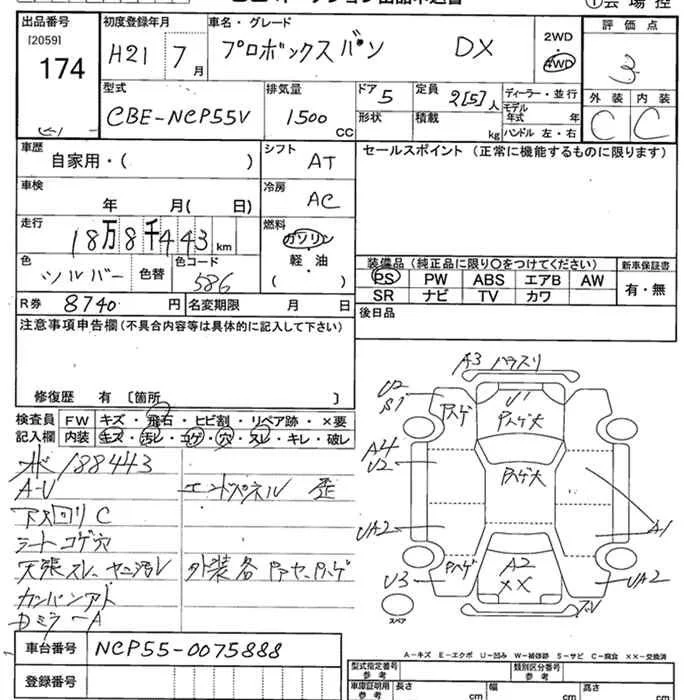 出品番号
[2059]
174
初度登録年月
H21 7月
車名・グレード
プロボックスバン DX
2WD
4WD
評価点
3
外装 内装
C C
型式
CBE-NCP55V
排気量
1500 CC
ドア 5
形状
定員 2[5]人
積載 kg
ディーラー・並行
モデル年式 年
ハンドル 左・右
車歴
自家用・( )
シフト
AT
車検
年 月( 日)
冷房
AC
走行
18万8千443 km
燃料
ガソリン
軽・油
( )
色
シルバー 色替
色コード
586
R券 8740 円
名変期限 月 日
セールスポイント (正常に機能するものに限ります)
装備品 (純正品に限り〇をつけてください)
PS PW ABS エアB AW
SR ナビ TV カワ
新車保証書
有・無
後日品
注意事項申告欄(不具合内容等は具体的に記入して下さい)
修復歴 有 〔箇所 〕
検査員記入欄
FW キズ・飛石・ヒビ割・リペア跡・×要
内装 キズ・汚レ・コゲ・穴・スレ・キレ・破レ
188443
A-U
下廻りC
シートコゲ穴
天張スレ、ヤニ汚レ
カンバンアト
DミラーA
エンドパネル 歪
車台番号 NCP55-0075888
登録番号
A3
U2
S1
U1
A4
U2
UA2
U3
A2
××
A1
UA2
スペア
A-キズ E-エクボ U-凹み W-補修跡 S-サビ C-腐食 ××-交換済
型式指定番号 参考
類別区分番号 参考
車庫証明用 参考
長さ cm
幅 cm
高さ cm